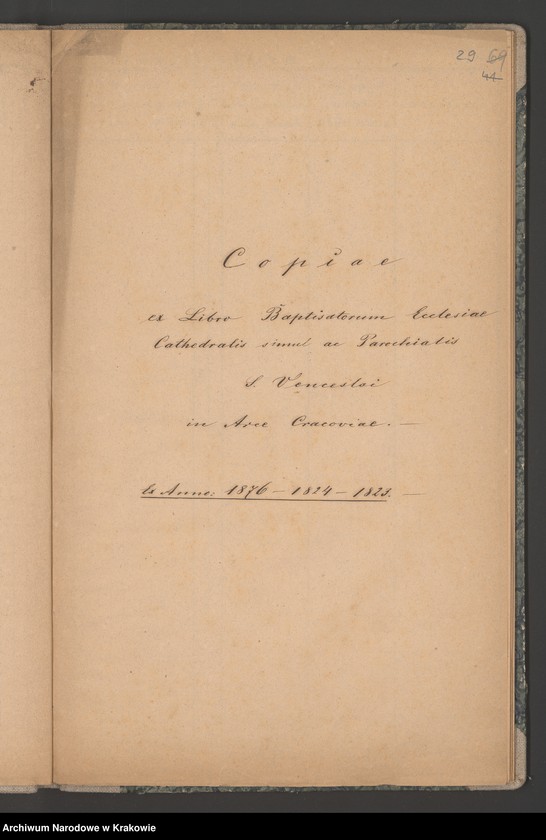 29 69
44
Copiae
ex Libro Baptisatorum Ecclesiae
Cathedralis simul ac Parochialis
S. Venceslai
in Arce Cracoviae. —
Ex Anno: 1876 – 1824 – 1823. —
Archiwum Narodowe w Krakowie